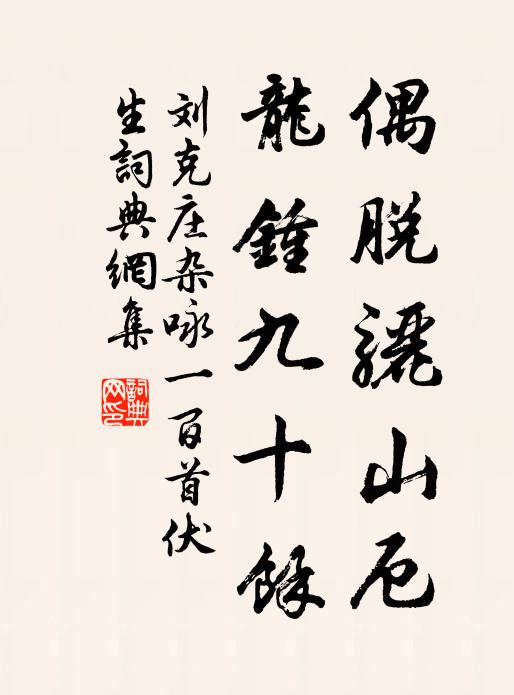 偶脱骊山厄
龍鍾九十餘
刘克庄杂咏一百首伏
生詞典網集
詞典
网印